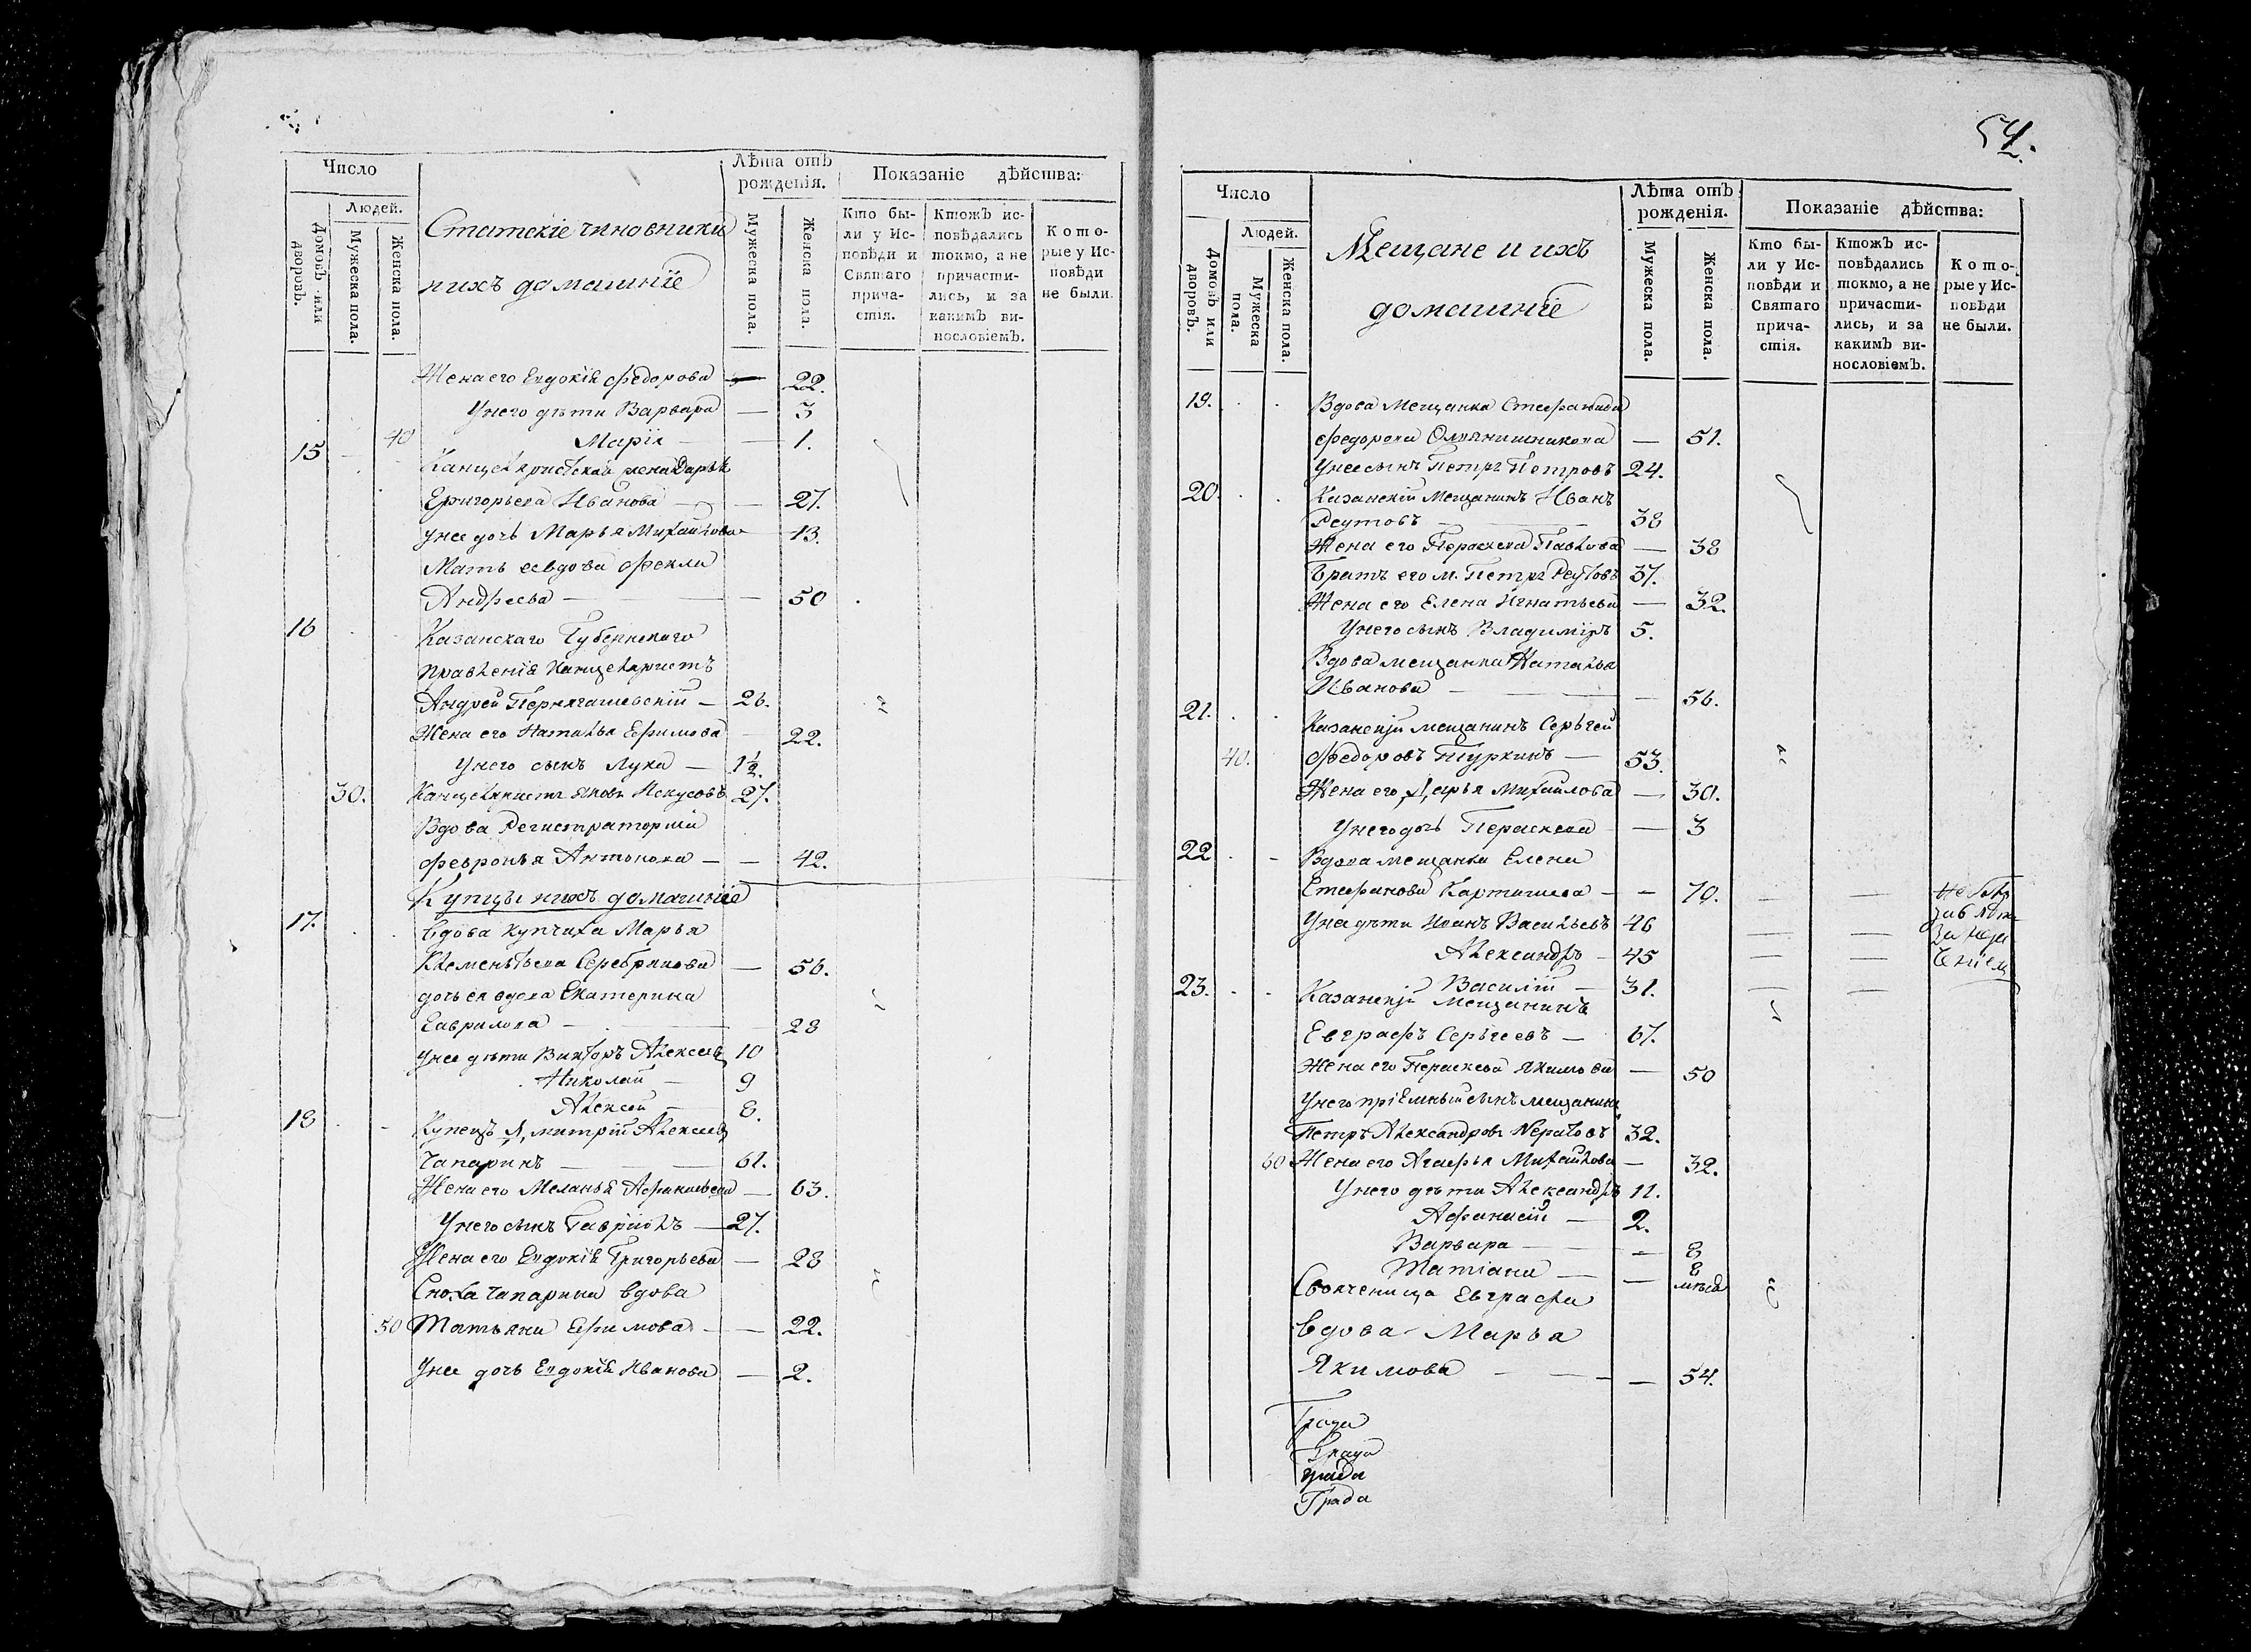 Число
Людей.
Домовъ или дворовъ.
Мужеска пола.
Женска пола.
Статскіе чиновники
и ихъ домашніе
Лѣта отъ рожденія.
Мужеска пола.
Женска пола.
Показаніе дѣйства:
Кто бы-
ли у Ис-
повѣди и
Святаго
прича-
стія.
Ктожъ ис-
повѣдались
токмо, а не
причасти-
лись, и за
какимъ ви-
нословіемъ.
Кото-
рые у Ис-
повѣди
не были.
Жена его Евдокія Федорова — 22.
У него дѣти Варвара — 3
40 Марія — 1.
15 Канцеляристская жена Дарья
Григорьева Иванова — 27.
У нее дочь Марья Михайлова 13.
Мать ее вдова Фекла
Андреева — 50
16 Казанскаго Губернскаго
Правленія Канцеляристъ
Андрей — 26.
Жена его Наталья Ефимова — 22.
У него сынъ Лука — 1½.
30. Канцеляристъ Яковъ 27.
Вдова Регистраторша
Февронья Антонова — 42.
Купцы и ихъ домашніе
17. Вдова купчиха Марья
Клементьева Серебрякова — 56.
дочь ея вдова Екатерина
Гаврилова — 28
У нее дѣти Викторъ Алексеевъ 10
Николай — 9
Алексей — 8.
18 Купецъ Дмитрій Алексеевъ
Чапаринъ — 61.
Жена его Меланья Афанасьева — 63.
У него сынъ Гавріилъ — 27.
Жена его Евдокія Григорьева — 28
Сноха Чапарина вдова
50 Татьяна Ефимова — 22.
У нее дочь Евдокія Иванова — 2.
54.
Число
Людей.
Домовъ или дворовъ.
Мужеска пола.
Женска пола.
Мещане и ихъ
домашніе
Лѣта отъ рожденія.
Мужеска пола.
Женска пола.
Показаніе дѣйства:
Кто бы-
ли у Ис-
повѣди и
Святаго
прича-
стія.
Ктожъ ис-
повѣдались
токмо, а не
причасти-
лись, и за
какимъ ви-
нословіемъ.
Кото-
рые у Ис-
повѣди
не были.
19. Вдова Мещанка Стефанида
Федорова — 51.
У нее сынъ Петръ Петровъ 24.
20. Казанскій Мещанинъ Иванъ
Реутовъ 38
Жена его Параскева Павлова — 38
Братъ его м. Петръ Реутовъ 37.
Жена его Елена Игнатьева — 32.
У него сынъ Владиміръ 5.
Вдова мещанка Наталья
Иванова — 56.
21. Казанскій мещанинъ Сергѣй
40. Федоровъ Тюркинъ — 53.
Жена его Дарья Михайлова — 30.
У него дочь Параскева — 3
22 Вдова мещанка Елена
Стефанова Карташева — 70.
У нея дѣти Иоанъ Васильевъ 46
Александръ — 45
Василій — 31.
23. Казанскій Мещанинъ
Евграфъ Сергѣевъ — 67.
Жена его Параскева Якимова — 50
У него пріемный сынъ мещанинъ
Петръ Александровъ 32.
60 Жена его Агафья Михайлова — 32.
У него дѣти Александръ 11.
Афанасій — 2.
Варвара — 8
Татіана — 8
Свояченица Евграфа
вдова Марья
Якимова — 54.
Града
Града
Града